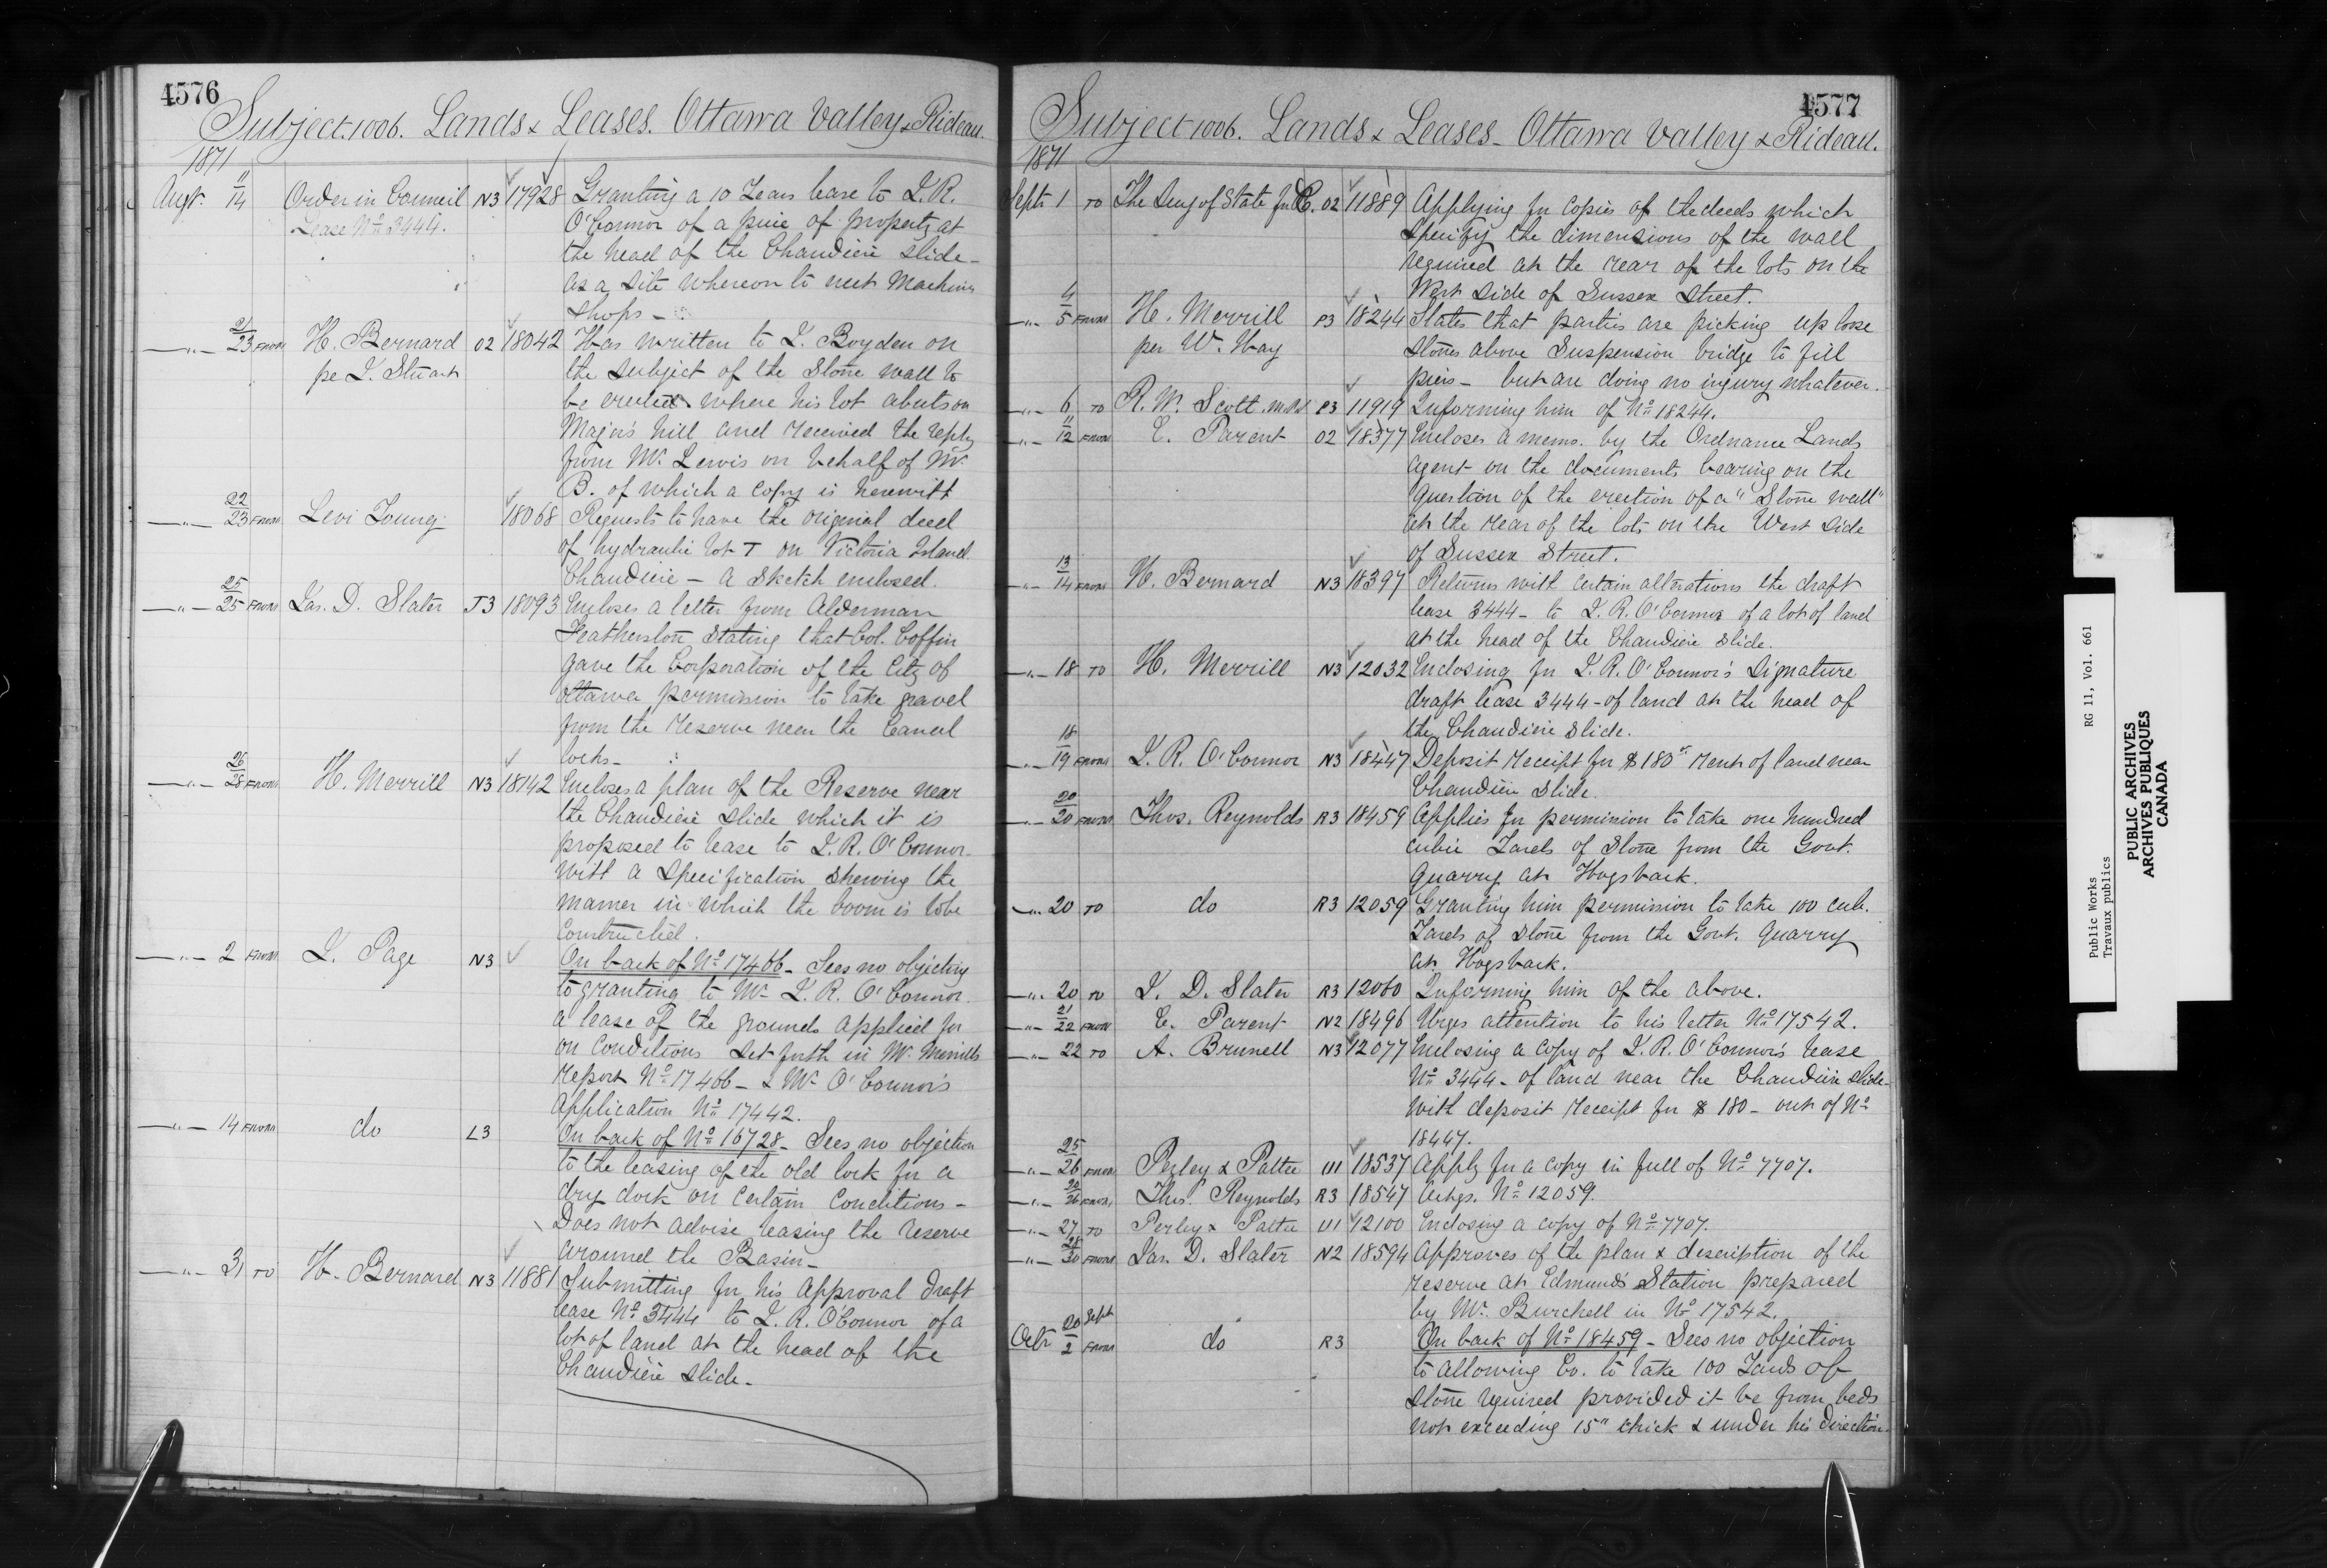 4576
Subject 1006. Lands & Leases. Ottawa Valley & Rideau.
1871
Augt. 11/14 Order in Council N3 17928 Granting a 10 Years lease to J. R.
Lease No 3444. O'Connor of a piece of property at
the head of the Chaudiere slide -
as a site whereon to erect Machine
shops -
" 21/23 FROM H. Bernard O2 18042 Has written to J. Boyden on
pe J. Stuart the subject of the Stone wall to
be erected where his lot abuts on
Major's hill and received the reply
from Mr. Lewis on behalf of Mr.
B. of which a copy is herewith
" 22/23 FROM Levi Young 18068 Requests to have the original deed
of hydraulic lot T on Victoria Island
Chaudiere - a sketch enclosed.
" 25/25 FROM Jas. D. Slater J3 18093 Encloses a letter from Alderman
Featherston stating that Col. Coffin
gave the Corporation of the City of
Ottawa permission to take gravel
from the reserve near the Canal
locks -
" 26/28 FROM H. Merrill N3 18142 Encloses a plan of the Reserve near
the Chaudiere slide which it is
proposed to lease to J. R. O'Connor.
With a specification shewing the
manner in which the boom is to be
constructed.
" 2 FROM J. Page N3 On back of No 17466 - Sees no objecting
to granting to Mr J. R. O'Connor
a lease of the grounds applied for
on conditions set forth in Mr. Merrills
report No 17466 - & Mr O'Connor's
application No 17442.
" 14 FROM do L3 On back of No 16728 - Sees no objection
to the leasing of the old lock for a
dry dock on certain conditions -
Does not advise leasing the reserve
around the Basin -
" 31 TO H. Bernard N3 11881 Submitting for his approval draft
lease No 3444 to J. R. O'Connor of a
lot of land at the head of the
Chaudiere slide -
4577
Subject 1006. Lands & Leases - Ottawa Valley & Rideau.
1871
Septr 1 TO The Secy of State for the P. O2 11889 Applying for copies of the deeds which
specify the dimensions of the wall
required at the rear of the lots on the
West side of Sussex Street.
" 4/5 FROM H. Merrill P3 18244 States that parties are picking up loose
per W. Hay stones above Suspension bridge to fill
piers - but are doing no injury whatever.
" 6 TO R. W. Scott M.P.P. P3 11919 Informing him of No 18244.
" 11/12 FROM E. Parent O2 18377 Encloses a memo. by the Ordnance Lands
agent on the documents bearing on the
question of the erection of a "Stone wall"
at the rear of the lots on the West side
of Sussex Street.
" 13/14 FROM H. Bernard N3 18397 Returns with certain alterations the draft
lease 3444 - to J. R. O'Connor of a lot of land
at the head of the Chaudiere slide.
" 18 TO H. Merrill N3 12032 Enclosing for J. R. O'Connor's signature
draft lease 3444 - of land at the head of
the Chaudiere slide.
" 18/19 FROM J. R. O'Connor N3 18447 Deposit receipt for $180 rent of land near
Chaudiere slide.
" 20/20 FROM Thos. Reynolds R3 18459 Applies for permission to take one hundred
cubic Yards of stone from the Govt.
quarry at Hogsback.
" 20 TO do R3 12059 Granting him permission to take 100 cub.
Yards of stone from the Govt. quarry
at Hogsback.
" 20 TO J. D. Slater R3 12060 Informing him of the above.
" 21/22 FROM E. Parent N2 18496 Urges attention to his letter No 17542.
" 22 TO A. Brunell N3 12077 Enclosing a copy of J. R. O'Connor's lease
No 3444 - of land near the Chaudiere slide -
with deposit receipt for $180 - out of No
18447.
" 25/26 FROM Perley & Pattee U1 18537 Apply for a copy in full of No 7707.
" 26 FROM Thos. Reynolds R3 18547 Ackgs. No 12059.
" 27 TO Perley & Pattee U1 12100 Enclosing a copy of No 7707.
" 28/30 FROM Jas. D. Slater N2 18594 Approves of the plan & description of the
reserve at Edmunds Station prepared
by Mr. Burchell in No 17542.
Octr 20 Sept/2 FROM do R3 On back of No 18459 - Sees no objection
to allowing Co. to take 100 Yards of
stone required provided it be from beds
not exceeding 15" thick & under his direction.
Public Works RG 11, Vol. 661
Travaux publics
PUBLIC ARCHIVES
ARCHIVES PUBLIQUES
CANADA